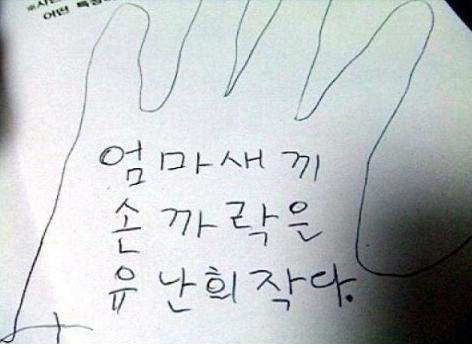 어떤
엄마새끼
손까락은
유난희작다.